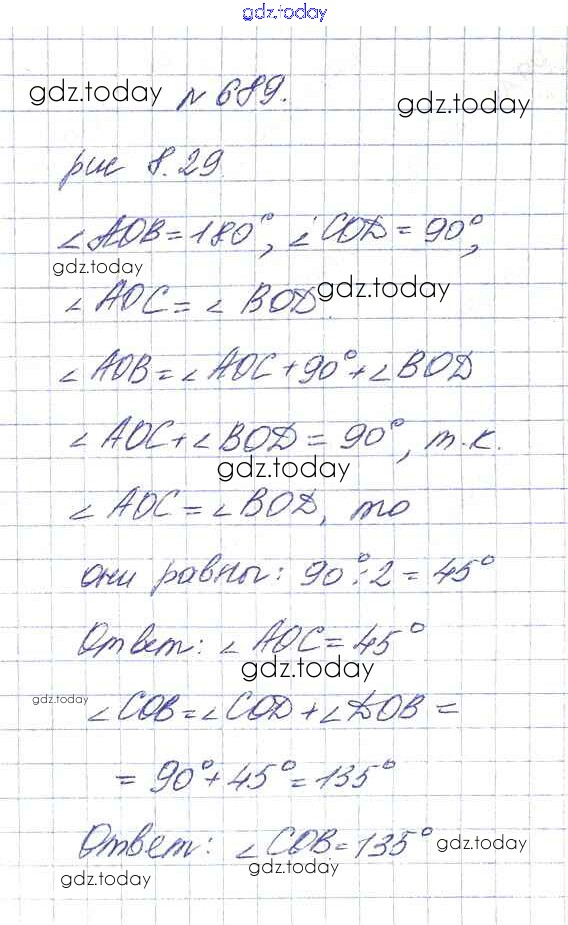 gdz.today
gdz.today № 689. gdz.today
рис 8.29
∠AOB = 180°, ∠COD = 90°,
gdz.today
∠AOC = ∠BOD. gdz.today
∠AOB = ∠AOC + 90° + ∠BOD
∠AOC + ∠BOD = 90°, т.к.
gdz.today
∠AOC = ∠BOD, то
они равны: 90° : 2 = 45°
Ответ: ∠AOC = 45°
gdz.today
gdz.today
∠COB = ∠COD + ∠DOB =
= 90° + 45° = 135°
Ответ: ∠COB = 135° gdz.today
gdz.today gdz.today